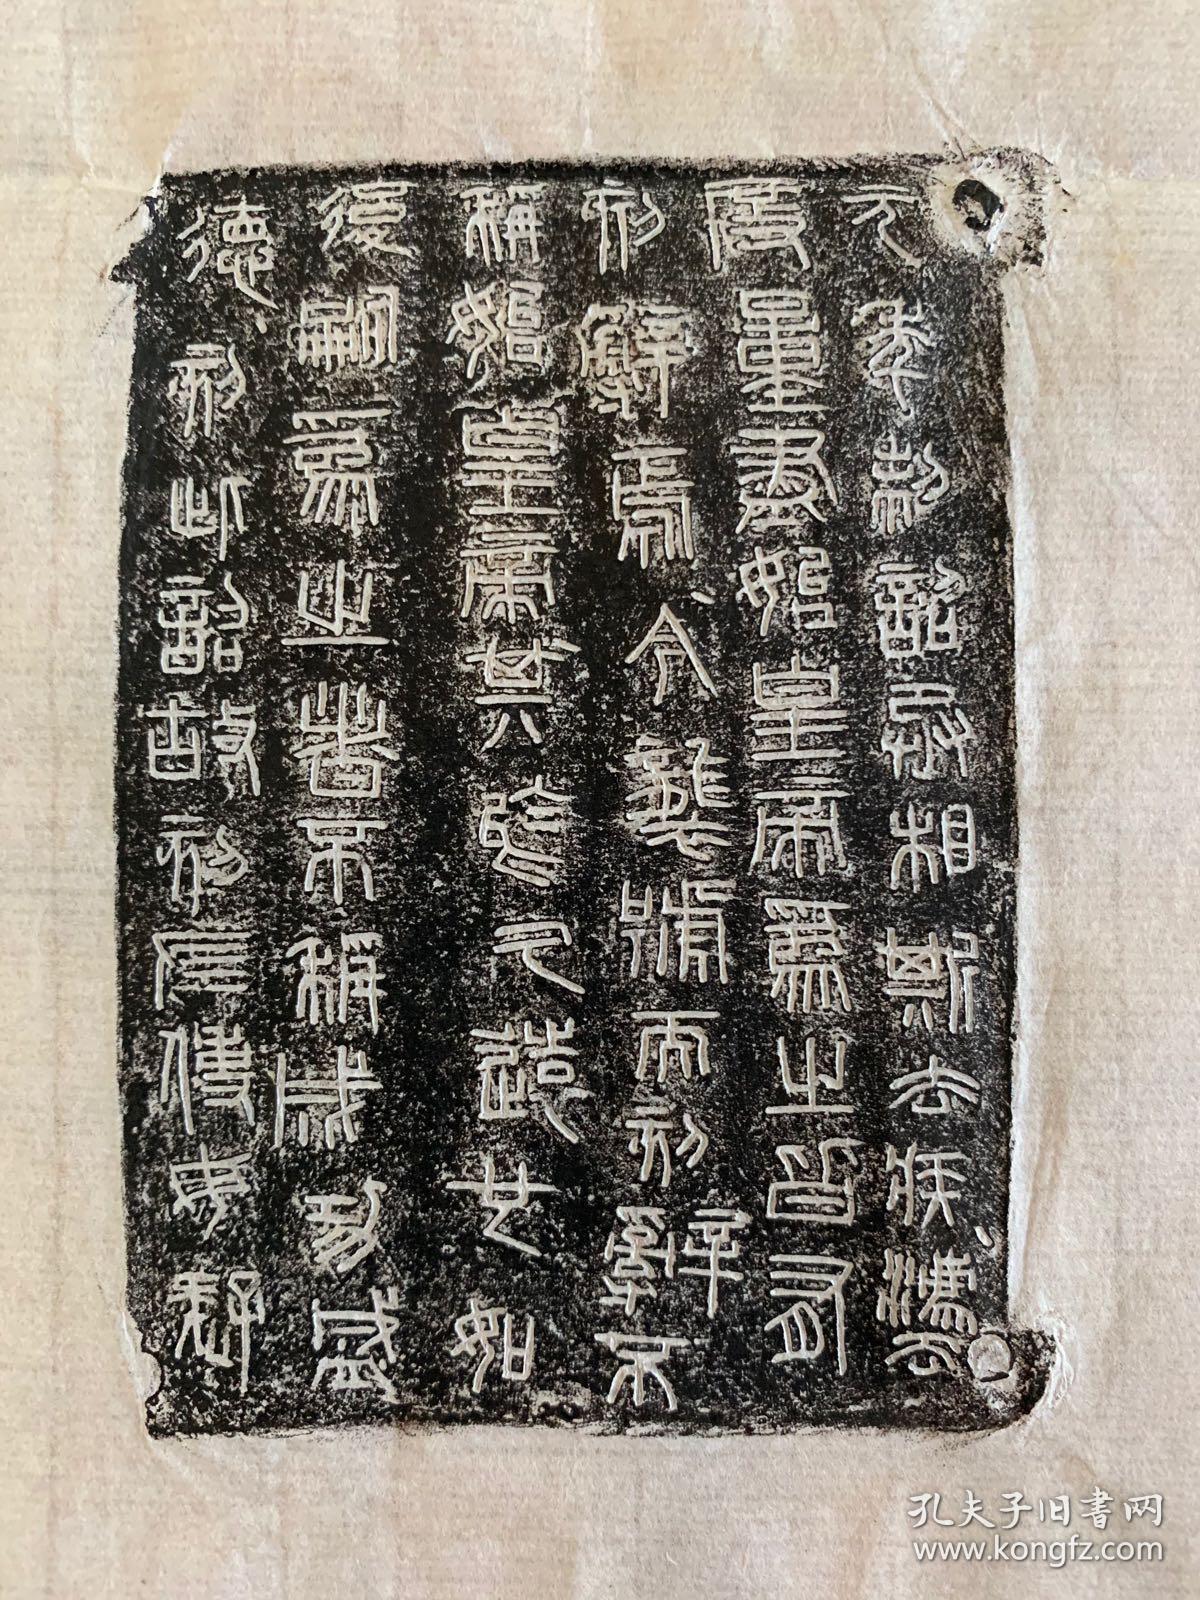 元年制詔丞相斯去疾灋
度量盡始皇帝為之皆有
刻辭焉今襲號而刻辭不
稱始皇帝其於久遠也如
後嗣為之者不稱成功盛
德刻此詔故刻左使毋疑
孔夫子旧書网
www.kongfz.com